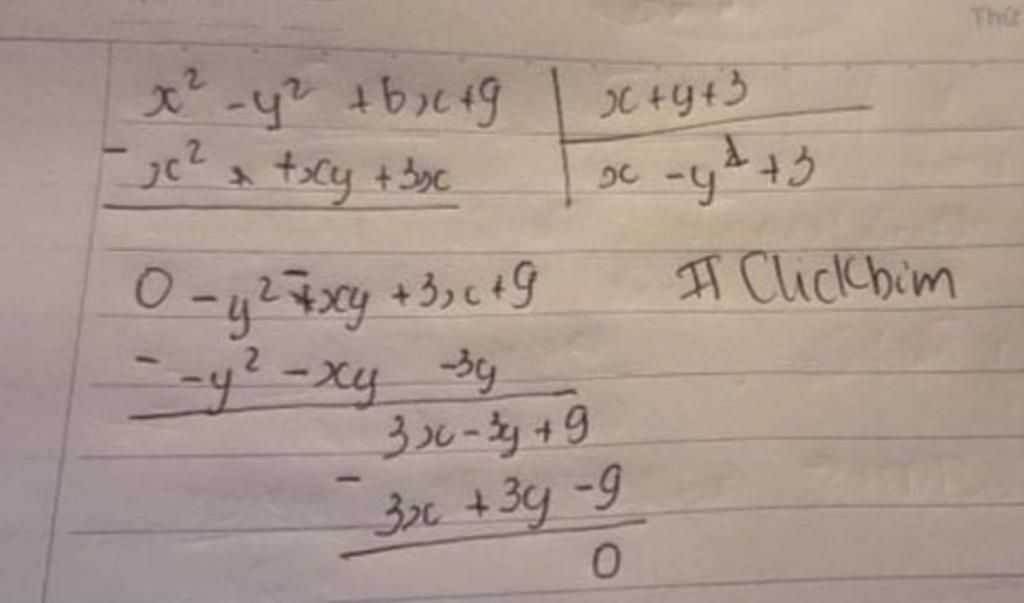 Thứ
x² - y² + 6x + 9 | x + y + 3
- x² + xy + 3x | x - y + 3
0 - y² - xy + 3x + 9 # Clickbim
- -y² - xy -3y
3x - 3y + 9
- 3x + 3y - 9
0